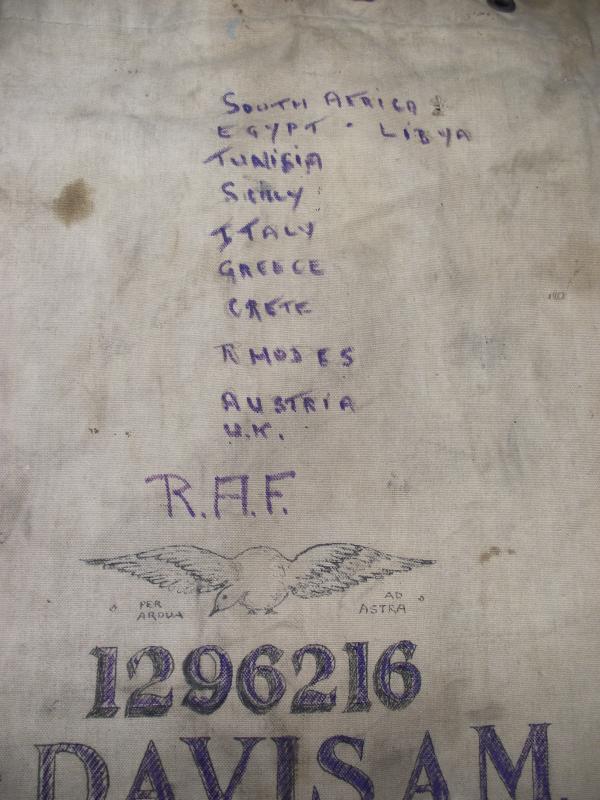 SOUTH AFRICA
EGYPT · LIBYA
TUNISIA
SICILY
ITALY
GREECE
CRETE
RHODES
AUSTRIA
U.K.
R.A.F.
PER AD
ARDUA ASTRA
1296216
DAVIS AM